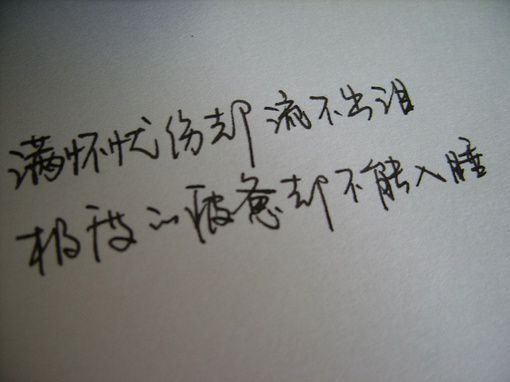 满怀忧伤却流不出泪
极度心疲惫却不能入睡